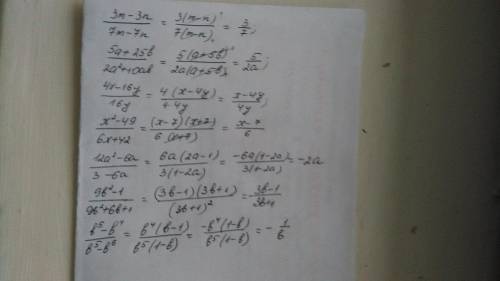 (3m-3n)/(7m-7n) = 3(m-n)/7(m-n) = 3/7;
(5a+25b)/(2a²+10ab) = 5(a+5b)/2a(a+5b) = 5/2a;
(4x-16y)/16y = 4(x-4y)/4·4y = (x-4y)/4y;
(x²-49)/(6x+42) = (x-7)(x+7)/6(x+7) = (x-7)/6
(12a²-6a)/(3-6a) = 6a(2a-1)/3(1-2a) = -6a(1-2a)/3(1-2a) = -2a
(9b²-1)/(9b²+6b+1) = (3b-1)(3b+1)/(3b+1)² = (3b-1)/(3b+1)
(b⁵-b⁴)/(b⁵-b⁶) = b⁴(b-1)/b⁵(1-b) = -b⁴(1-b)/b⁵(1-b) = -1/b